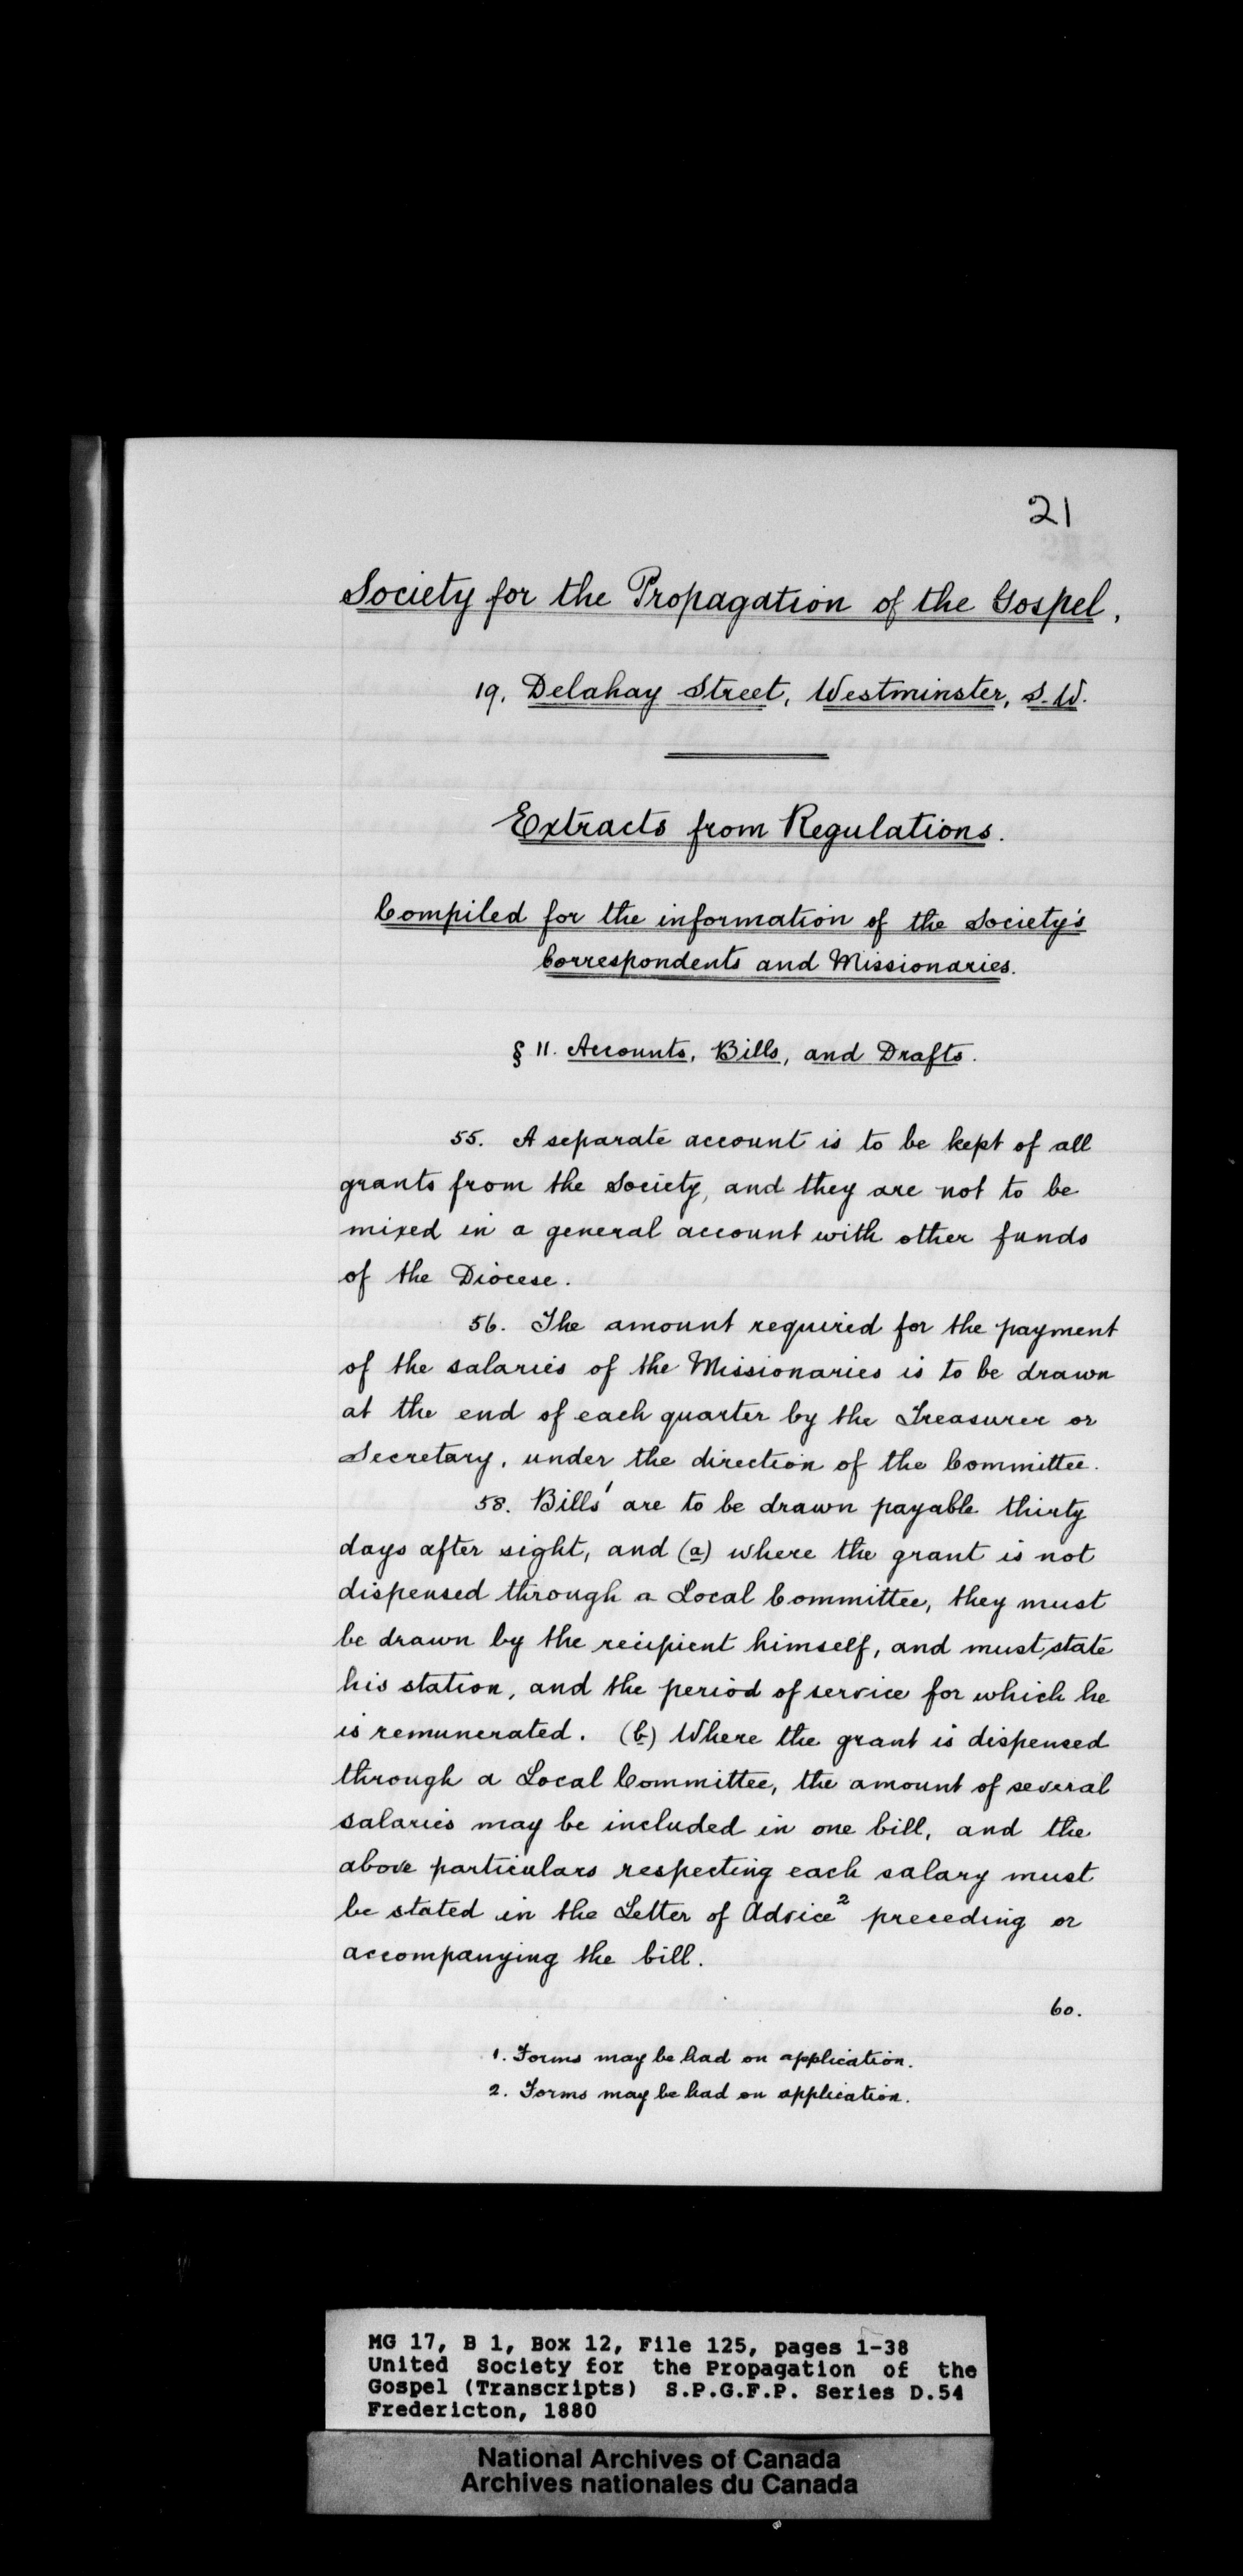 21
Society for the Propagation of the Gospel,
19, Delahay Street, Westminster, S.W.
Extracts from Regulations.
Compiled for the information of the Society's
Correspondents and Missionaries.
§ 11. Accounts, Bills, and Drafts.
55. A separate account is to be kept of all
grants from the Society, and they are not to be
mixed in a general account with other funds
of the Diocese.
56. The amount required for the payment
of the salaries of the Missionaries is to be drawn
at the end of each quarter by the Treasurer or
Secretary, under the direction of the Committee.
58. Bills¹ are to be drawn payable thirty
days after sight, and (a) where the grant is not
dispensed through a Local Committee, they must
be drawn by the recipient himself, and must state
his station, and the period of service for which he
is remunerated. (b) Where the grant is dispensed
through a Local Committee, the amount of several
salaries may be included in one bill, and the
above particulars respecting each salary must
be stated in the Letter of Advice² preceding or
accompanying the bill.
60.
1. Forms may be had on application.
2. Forms may be had on application.
MG 17, B 1, Box 12, File 125, pages 1-38
United Society for the Propagation of the
Gospel (Transcripts) S.P.G.F.P. Series D.54
Fredericton, 1880
National Archives of Canada
Archives nationales du Canada